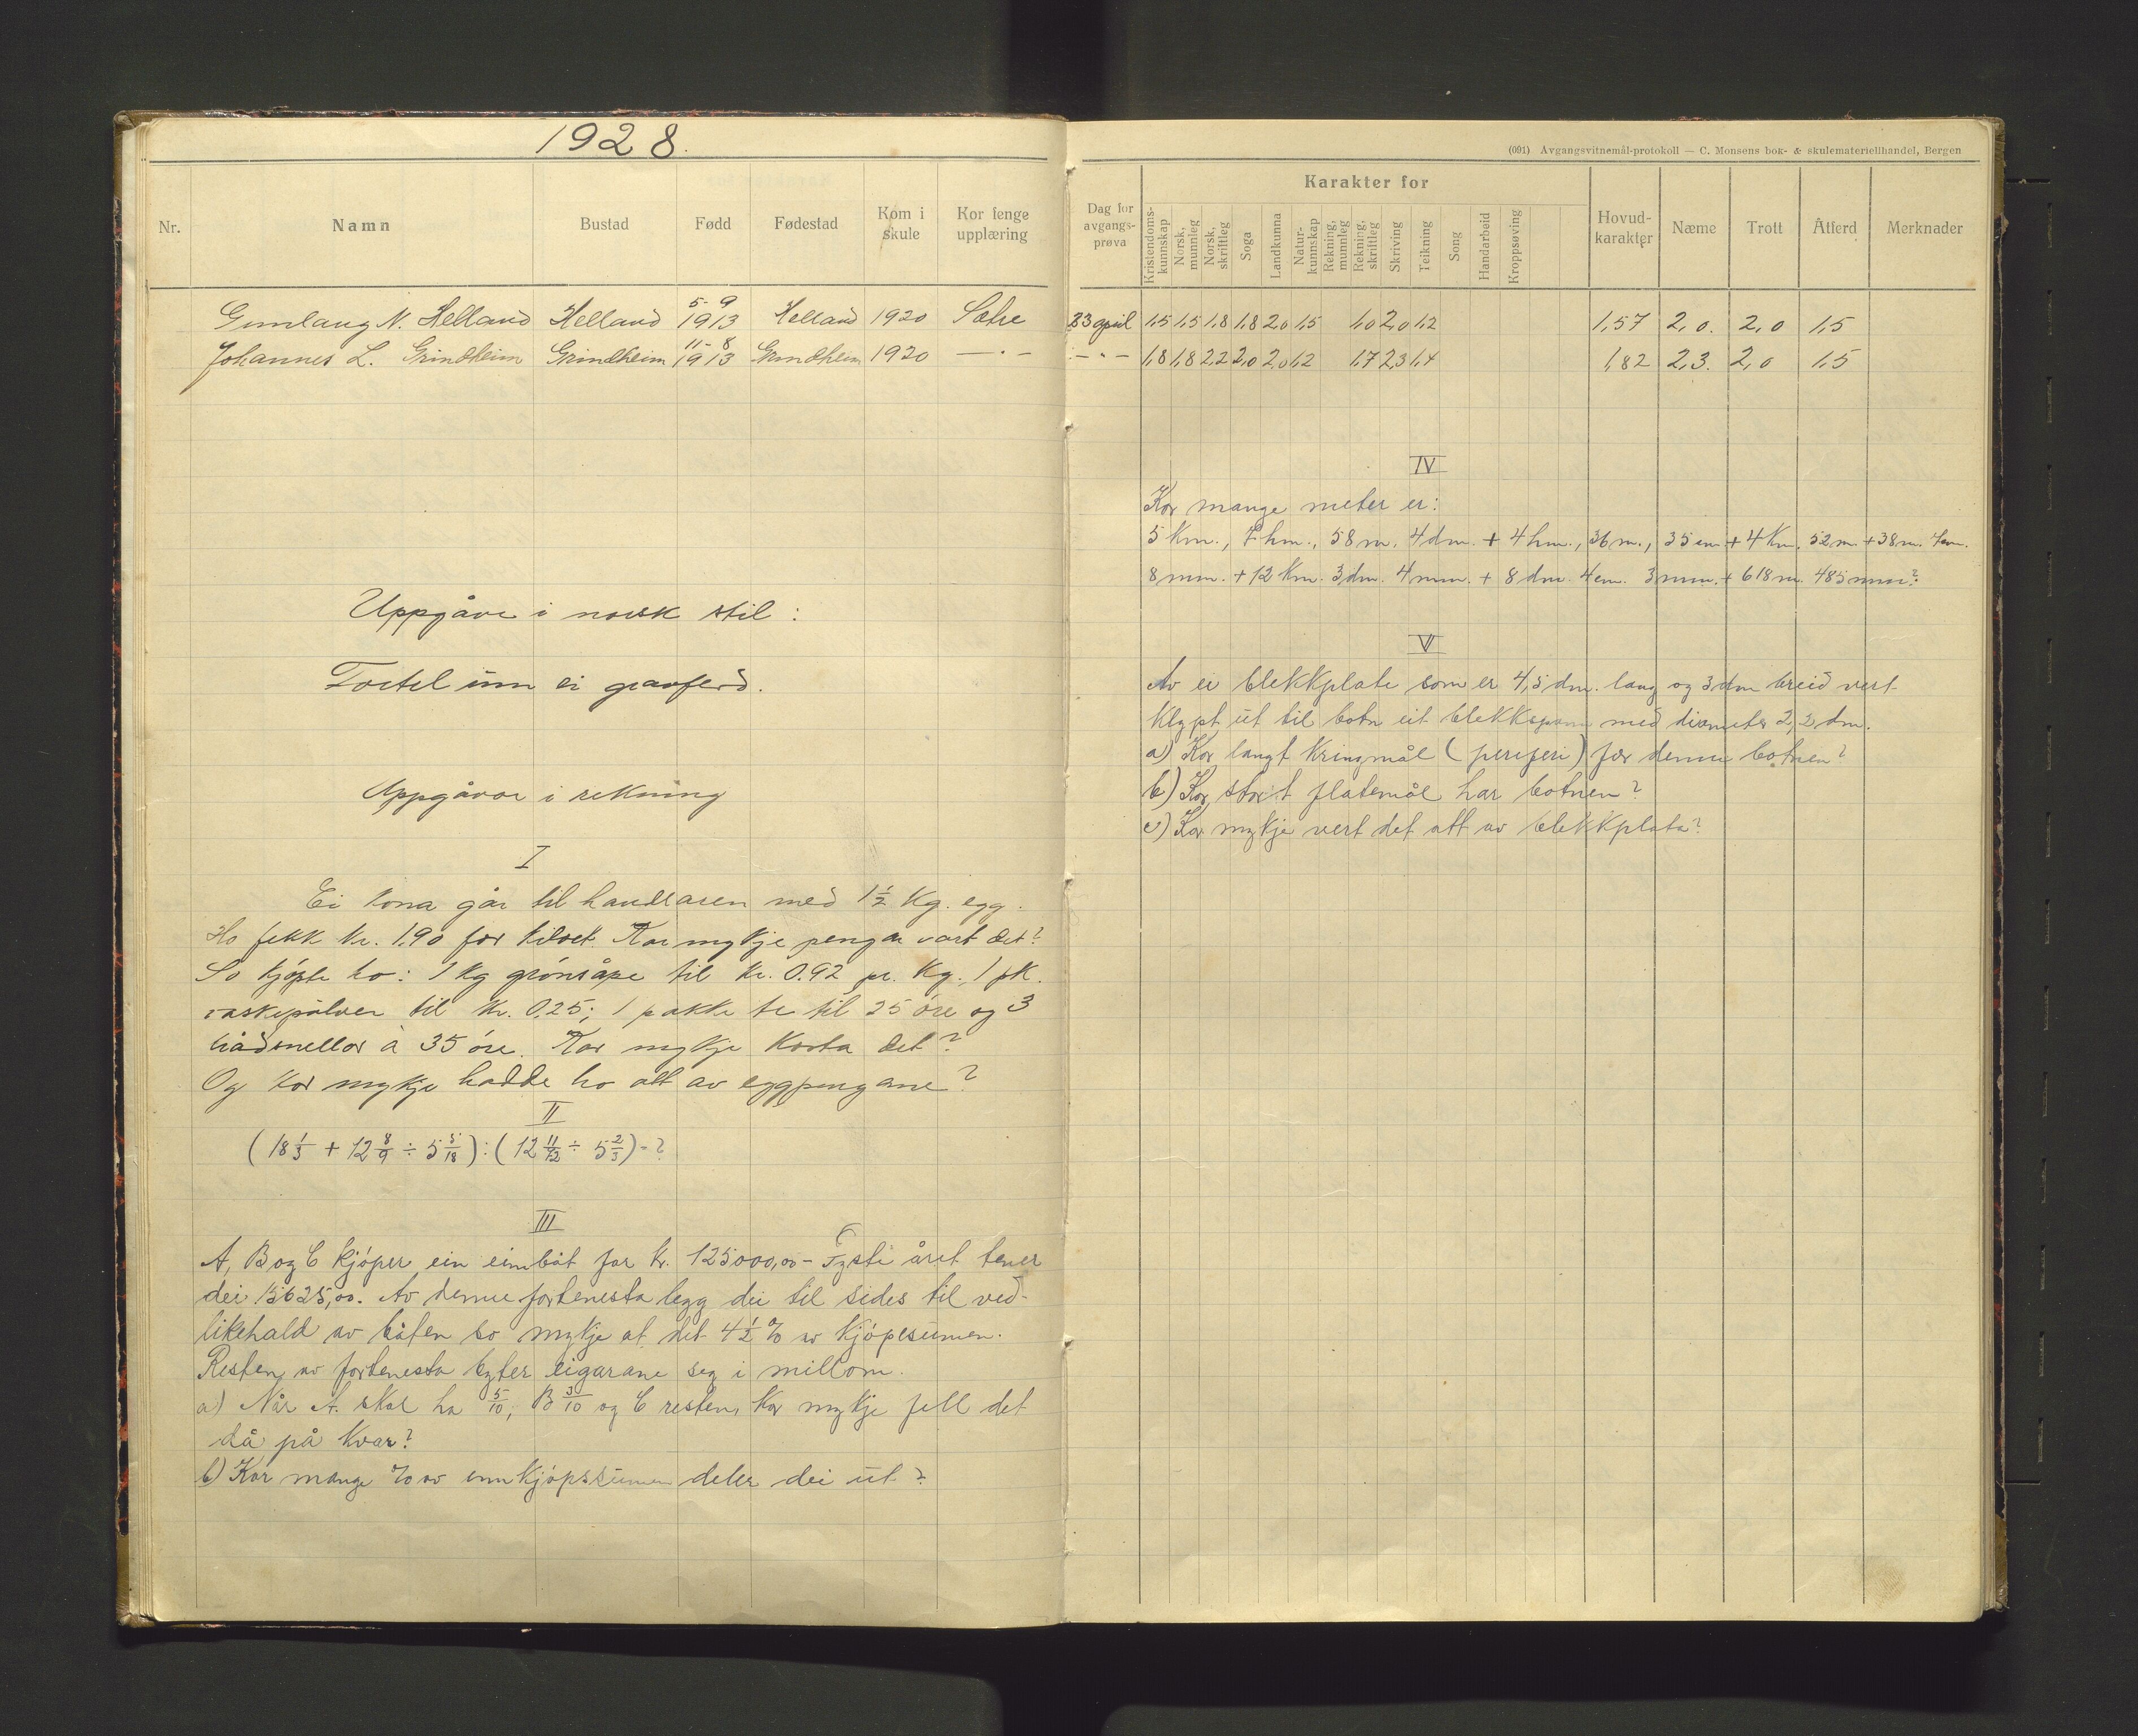 1928.
Nr.
Namn
Bustad
Født
Fødestad
Kom i skule
Kor fenge upplæring
5-9
Gunlaug N. Helland Helland 1913 Helland 1920 Sætre
11-8
Johannes L. Grindheim Grindheim 1913 Grindheim 1920 — " —
Uppgåve i norsk stil:
Fortel um ei gravferd.
Uppgåvor i rekning
I
Ei kona går til handlaren med 1½ kg. egg.
Ho fekk kr. 1.90 for kiloet. Kor mykje pengar vart det?
So kjøpte ho: 1 kg grønsåpe til kr. 0.92 pr. kg., 1 pk.
vaskepulver til kr. 0.25; 1 pakke te til 25 øre og 3
trådsnellor à 35 øre. Kor mykje kosta det?
Og kor mykje hadde ho att av eggpengane?
II
(18 1/3 + 12 8/9 ÷ 5 5/18) : (12 11/12 ÷ 5 2/3) = ?
III
A, B og C kjøper ein eimbåt for kr. 125000,00 – Fyste året tener
dei 15625,00. Av denne fortenesta legg dei til sides til ved-
likehald av båten so mykje at det 4½ % av kjøpesumen.
Resten av fortenesta byter eigarane seg i millom.
a) Når A. skal ha 5/10, B 3/10 og C resten, kor mykje fell det
då på kvar?
b) Kor mange % av innkjøpssumen deler dei ut?
(091) Avgangsvitnemål-protokoll — C. Monsens bok- & skulemateriellhandel, Bergen
Dag for avgangs-prøva
Karakter for
Kristendoms-kunnskap
Norsk, munnleg
Norsk, skriftleg
Soga
Landkunna
Natur-kunnskap
Rekning, munnleg
Rekning, skriftleg
Skriving
Teikning
Song
Handarbeid
Kroppsøving
Hovud-karakter
Næme
Trott
Åtferd
Merknader
23 april 1,5 1,5 1,8 1,8 2,0 1,5 1,0 2,0 1,2 1,57 2,0. 2,0 1,5
— " — 1,8 1,8 2,2 2,0 2,0 1,2 1,7 2,3 1,4 1,82 2,3. 2,0 1,5
IV
Kor mange meter er:
5 km., 7 hm., 58 m. 4 dm. + 4 hm., 36 m., 35 cm + 4 km. 52 m. + 38 m. 7 cm.
8 mm. + 12 km. 3 dm. 4 mm. + 8 dm. 4 cm. 3 mm. + 618 m. 485 mm?
V
Av ei blekkplate som er 4,5 dm. lang og 3 dm breid vert
klypt ut til botn eit blekkspann med diameter 2,2 dm.
a) Kor langt kringmål (periferi) fær denne botnen?
b) Kor stort flatemål har botnen?
c) Kor mykje vert det att av blekkplata?